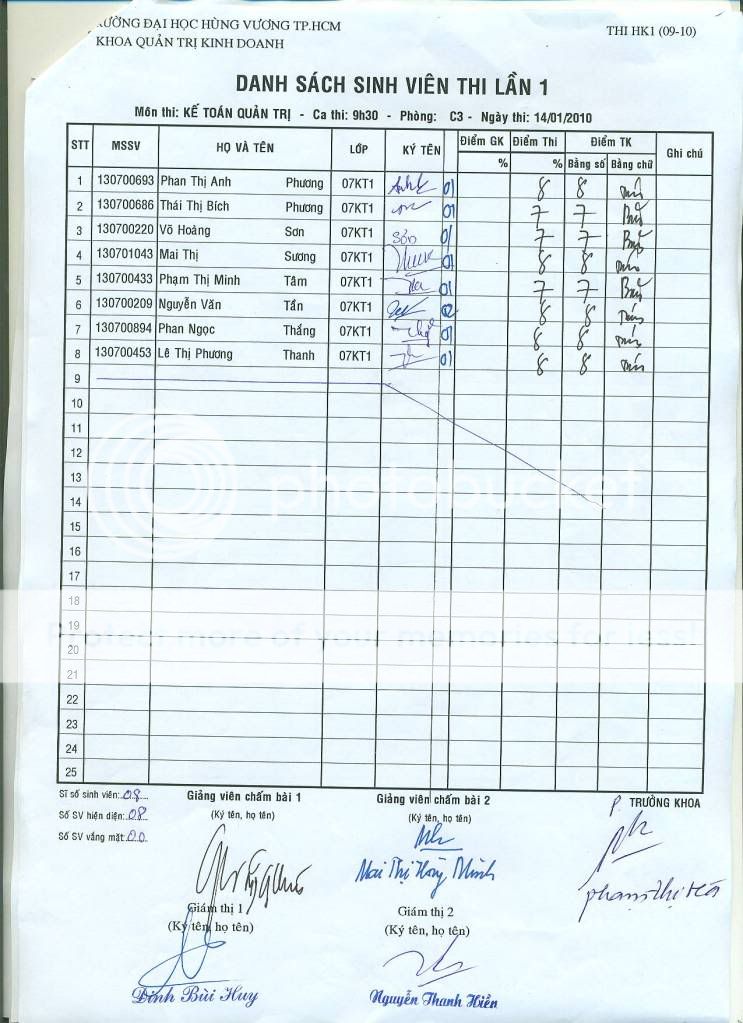 RƯỜNG ĐẠI HỌC HÙNG VƯƠNG TP.HCM THI HK1 (09-10)
KHOA QUẢN TRỊ KINH DOANH
DANH SÁCH SINH VIÊN THI LẦN 1
Môn thi: KẾ TOÁN QUẢN TRỊ - Ca thi: 9h30 - Phòng: C3 - Ngày thi: 14/01/2010
STT MSSV HỌ VÀ TÊN LỚP KÝ TÊN Điểm GK Điểm Thi Điểm TK Ghi chú
% % Bằng số Bằng chữ
1 130700693 Phan Thị Anh Phương 07KT1 01 8 8 tám
2 130700686 Thái Thị Bích Phương 07KT1 01 7 7 Bảy
3 130700220 Võ Hoàng Sơn 07KT1 Sơn 01 7 7 Bảy
4 130701043 Mai Thị Sương 07KT1 01 8 8 tám
5 130700433 Phạm Thị Minh Tâm 07KT1 01 7 7 Bảy
6 130700209 Nguyễn Văn Tần 07KT1 02 8 8 tám
7 130700894 Phan Ngọc Thắng 07KT1 01 8 8 tám
8 130700453 Lê Thị Phương Thanh 07KT1 01 8 8 tám
9
10
11
12
13
14
15
16
17
18
19
20
21
22
23
24
25
photobucket
Protect more of your memories for less!
Sĩ số sinh viên: 08 Giảng viên chấm bài 1 Giảng viên chấm bài 2 P. TRƯỞNG KHOA
Số SV hiện diện: 08 (Ký tên, họ tên) (Ký tên, họ tên)
Số SV vắng mặt: 00
Mai Thị Hồng Minh
Phạm Thị Hà
Giám thị 1 Giám thị 2
(Ký tên, họ tên) (Ký tên, họ tên)
Đinh Bùi Huy Nguyễn Thanh Hiền